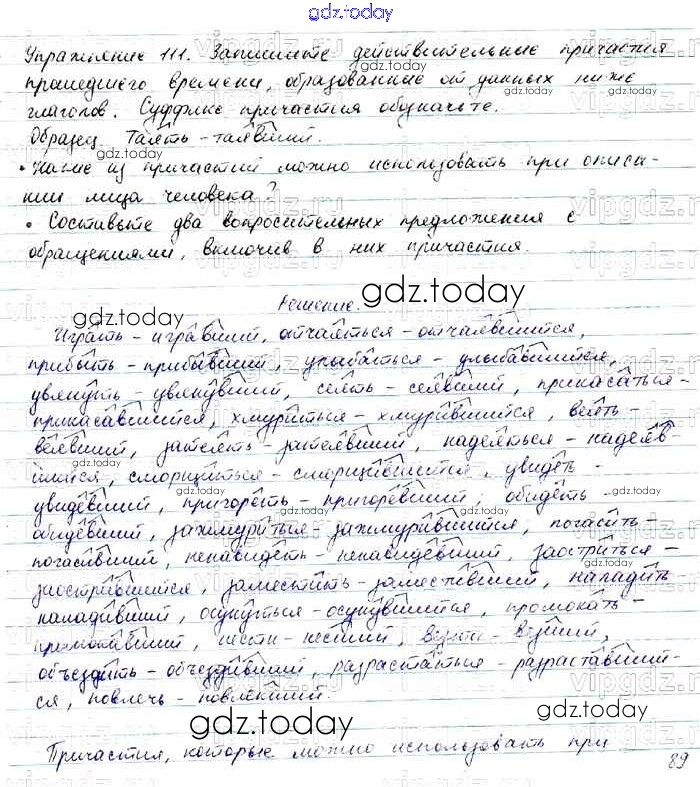 gdz.today
Упражнение 111. Запишите действительные причастия
gdz.today
прошедшего времени, образованные от данных ниже
глаголов. Суффикс причастия обозначьте.
Образец. Таять – таявший.
gdz.today
• Какие из причастий можно использовать при описа-
нии лица человека?
• Составьте два вопросительных предложения с
обращениями, включив в них причастия.
gdz.today
gdz.today
Решение.
Играть – игравший, отчаяться – отчаявшийся,
прибыть – прибывший, улыбаться – улыбавшийся,
увянуть – увянувший, сеять – сеявший, прикасаться –
прикасавшийся, хмуриться – хмурившийся, веять –
веявший, затеять – затеявший, надеяться – надеяв-
шийся, сморщиться – сморщившийся, увидеть –
gdz.today
увидевший, пригореть – пригоревший, обидеть –
обидевший, зажмуриться – зажмурившийся, погасить –
погасивший, ненавидеть – ненавидевший, заостриться –
заострившийся, заместить – заместивший, наладить
наладивший, окунуться – окунувшийся, промокать –
промокавший, нести – несший, везти – везший,
объездить – объездивший, разрастаться – разраставший-
ся, повлечь – повлекший.
gdz.today
Причастия, которые можно использовать при
89